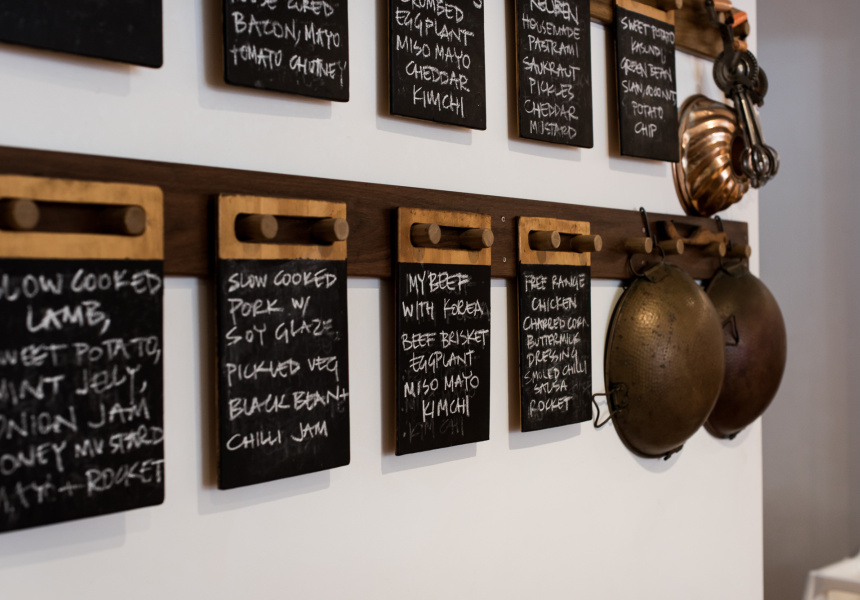 CURED
BACON, MAYO
TOMATO CHUTNEY
CRUMBED
EGGPLANT
MISO MAYO
CHEDDAR
KIMCHI
REUBEN
HOUSEMADE
PASTRAMI
SAUKRAUT
PICKLES
CHEDDAR
MUSTARD
SWEET POTATO
KASUNDI,
GREEN BEAN
POTATO
CHIP
SLOW COOKED
LAMB,
SWEET POTATO,
MINT JELLY,
ONION JAM
HONEY MUSTARD
MAYO + ROCKET
SLOW COOKED
PORK W/
SOY GLAZE
PICKLED VEG
BLACK BEAN+
CHILLI JAM
MY BEEF
WITH KOREA
BEEF BRISKET
EGGPLANT
MISO MAYO
KIMCHI
KIM CHI
FREE RANGE
CHICKEN
CHARRED CORN
BUTTERMILK
DRESSING
SMOKED CHILLI
SALSA
ROCKET